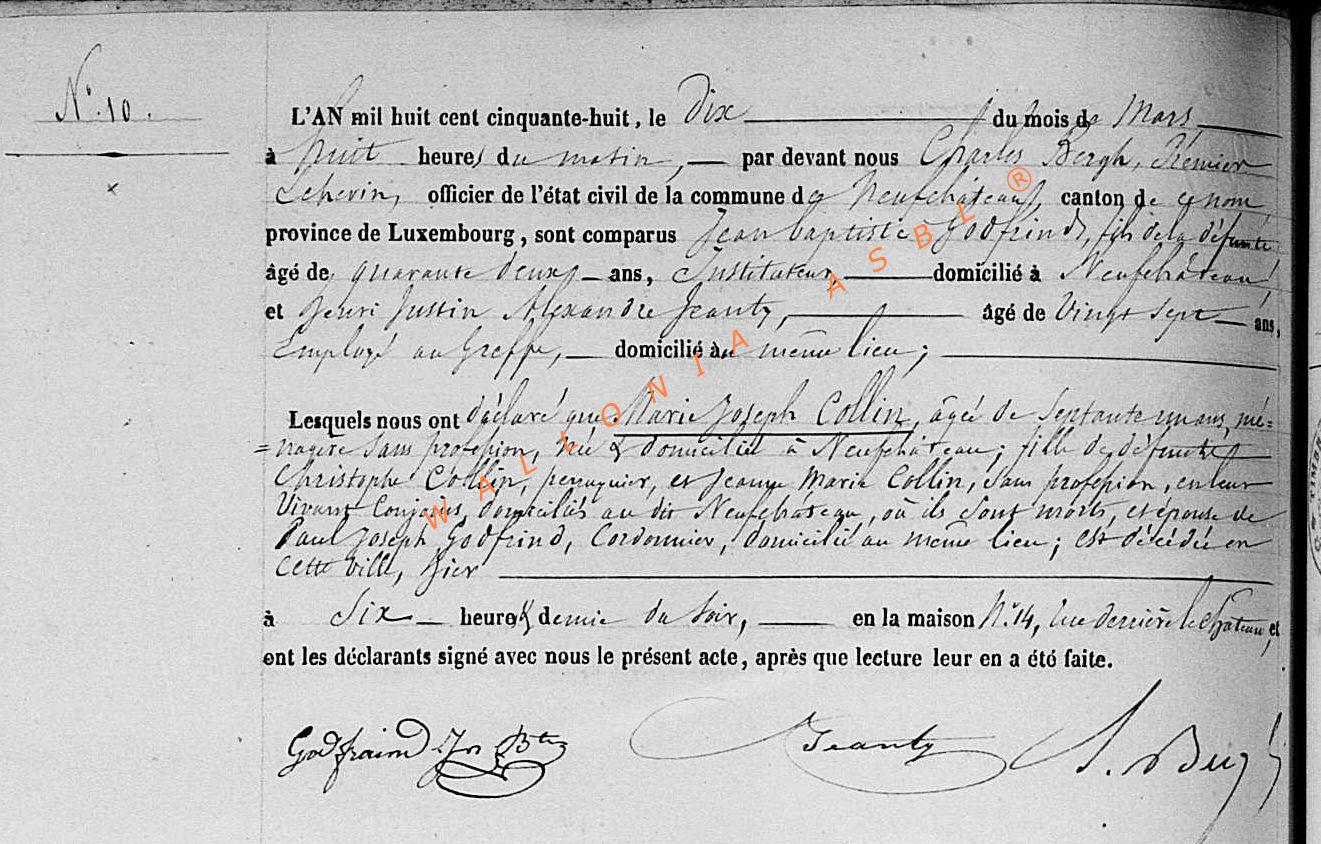 N.º 10.
L'AN mil huit cent cinquante-huit, le Dix du mois de Mars,
à huit heures du matin, par devant nous Charles Bergh, Premier
Echevin, officier de l'état civil de la commune de Neufchâteau, canton de ce nom,
province de Luxembourg, sont comparus Jean baptiste Godfrind, fils de la défunte,
âgé de quarante deux ans, Instituteur, domicilié à Neufchâteau,
et Henri Justin Alexandre Jeanty, âgé de Vingt sept ans,
Employé au Greffe, domicilié au même lieu;
Lesquels nous ont déclaré que Marie Joseph Collin, âgée de Septante un ans, mé=
=nagère sans profession, née & domiciliée à Neufchâteau; fille de défunts
Christophe Collin, perruquier, et Jeanne Marie Collin, sans profession, en leur
Vivant Conjoints, domiciliés au dit Neufchâteau, où ils sont morts, et épouse de
Paul Joseph Godfrind, Cordonnier, domicilié au même lieu; est décédée en
cette ville, hier
à Six heures & demie du Soir, en la maison N.º 14, rue derrière le Château, et
ont les déclarants signé avec nous le présent acte, après que lecture leur en a été faite.
Godfraind Jn Bte Jeanty
WALLONIA ASBL ®